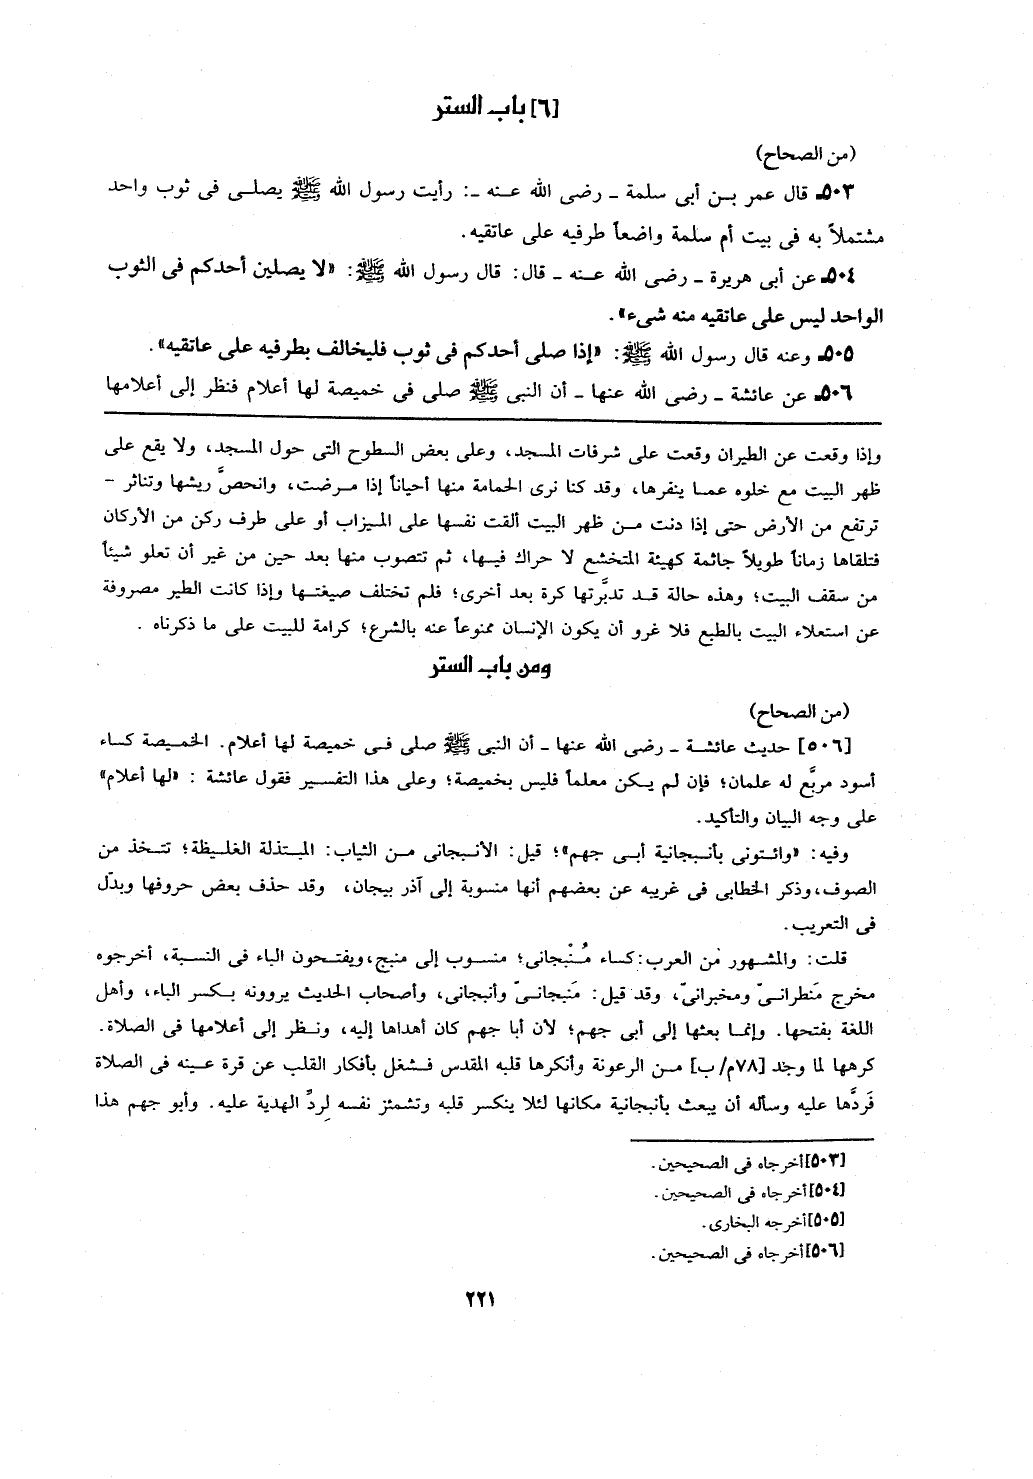 [٦] باب الستر
(من الصحاح)
٥٠٣ـ قال عمر بـن أبى سلمة ـ رضى الله عـنه ـ: رأيت رسول الله ﷺ يصلـى فى ثوب واحد
مشتملاً به فى بيت أم سلمة واضعاً طرفيه على عاتقيه.
٥٠٤ـ عن أبى هريرة ـ رضى الله عـنه ـ قال: قال رسول الله ﷺ: «لا يصلين أحدكم فى الثوب
الواحد ليس على عاتقيه منه شىء».
٥٠٥ـ وعنه قال رسول الله ﷺ: «إذا صلى أحدكم فى ثوب فليخالف بطرفيه على عاتقيه».
٥٠٦ـ عن عائشة ـ رضى الله عنها ـ أن النبى ﷺ صلى فى خميصة لها أعلام فنظر إلى أعلامها
وإذا وقعت عن الطيران وقعت على شرفات المسجد، وعلى بعض السطوح التى حول المسجد، ولا يقع على
ظهر البيت مع خلوه عمـا ينفرها، وقد كنا نرى الحمامة منها أحياناً إذا مـرضت، وانحصَّ ريشها وتناثر -
ترتفع من الأرض حتى إذا دنت مـن ظهر البيت ألقت نفسها على المـيزاب أو على طرف ركن من الأركان
فتلقاها زماناً طويلاً جاثمة كهيئة المتخشع لا حراك فيـها، ثم تتصوب منها بعد حين من غير أن تعلو شيئاً
من سقف البيت؛ وهذه حالة قـد تدبَّرتها كرة بعد أخرى؛ فلم تختلف صيغتـها وإذا كانت الطير مصروفة
عن استعلاء البيت بالطبع فلا غرو أن يكون الإنسان ممنوعاً عنه بالشرع؛ كرامة للبيت على ما ذكرناه .
ومن باب الستر
(من الصحاح)
[٥٠٦] حديث عائشـة ـ رضى الله عنها ـ أن النبى ﷺ صلى فـى خميصة لها أعلام. الخمـيصة كساء
أسود مربَّع له علمان؛ فإن لم يـكن معلماً فليس بخميصة؛ وعلى هذا التفسـير فقول عائشة : «لها أعلام»
على وجه البيان والتأكيد.
وفيه: «وائـتونى بأنـبجانية أبـى جهم»؛ قيل: الأنـبجانى مـن الثياب: المبـتذلة الغلـيظة؛ تتـخذ من
الصوف،وذكر الخطابى فى غريبه عن بعضهم أنها منسوبة إلى آذر بيجان، وقد حذف بعض حروفها وبدّل
فى التعريب.
قلت: والمشـهور من العرب:كساء مُـنْبجانى؛ منسـوب إلى منبج،ويفتـحون الباء فى النسبة، أخرجوه
مخرج مَنطرانـىّ ومخبرانىّ، وقد قيل: مَنبجانـىّ وأنبجانى، وأصحاب الحديث يروونه بـكسر الباء، وأهل
اللغة بفتحها. وإنمـا بعثها إلى أبى جهم؛ لأن أبا جهم كان أهداها إليه، ونـظر إلى أعلامها فى الصلاة.
كرهها لما وجد [٧٨م/ ب] مـن الرعونة وأنكرها قلبه المقدس فـشغل بأفكار القلب عن قرة عـينه فى الصلاة
فَردَّها عليه وسأله أن يبعث بأنبجانية مكانها لئلا ينكسر قلبه وتشمئز نفسه لِردِّ الهدية عليه. وأبو جهم هذا
[٥٠٣]أخرجاه فى الصحيحين.
[٥٠٤]أخرجاه فى الصحيحين.
[٥٠٥]أخرجه البخارى.
[٥٠٦]أخرجاه فى الصحيحين.
٢٢١